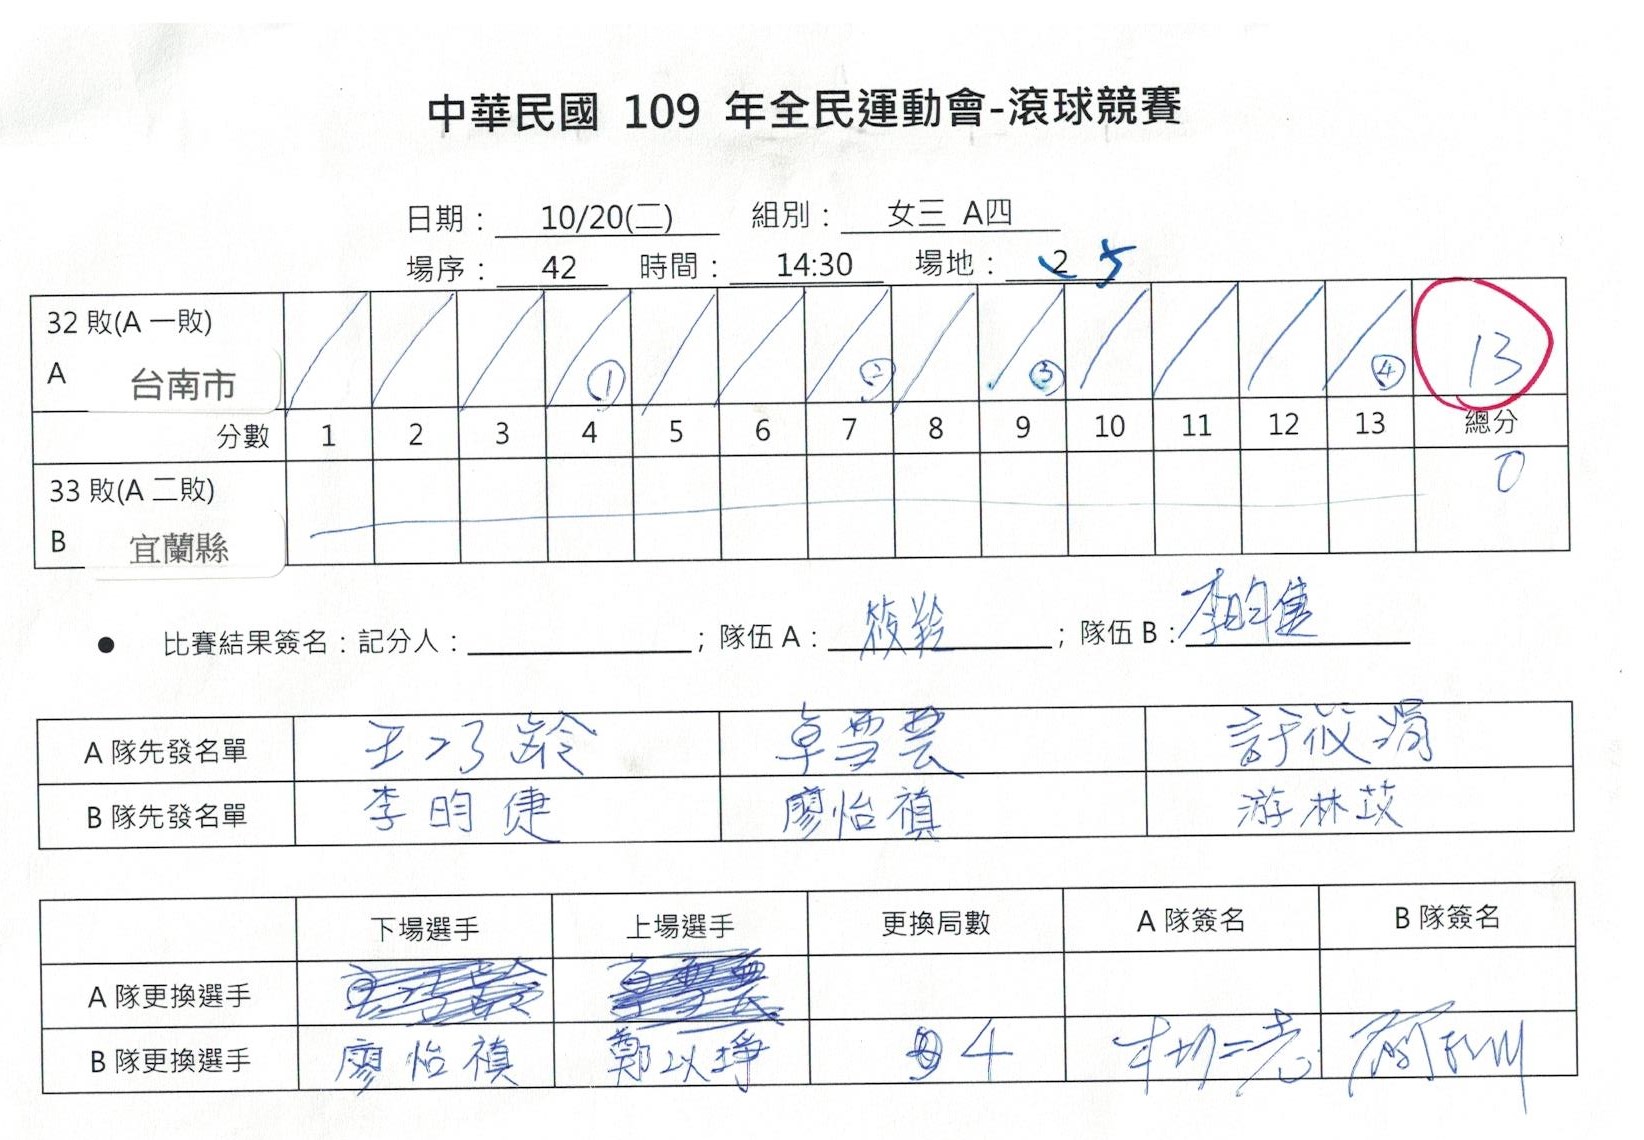 中華民國 109 年全民運動會-滾球競賽
日期： 10/20(二) 組別： 女三 A四
場序： 42 時間： 14:30 場地： 2 5
32 敗(A 一敗)
A 台南市 ① ② ③ ④ 13
分數 1 2 3 4 5 6 7 8 9 10 11 12 13 總分
33 敗(A 二敗) 0
B 宜蘭縣
● 比賽結果簽名：記分人： ；隊伍 A： ；隊伍 B： 李昀倢
A 隊先發名單 王巧齡 卓雪雲 許筱涓
B 隊先發名單 李昀倢 廖怡禛 游林苡
下場選手 上場選手 更換局數 A 隊簽名 B 隊簽名
A 隊更換選手
B 隊更換選手 廖怡禛 鄭以琤 4